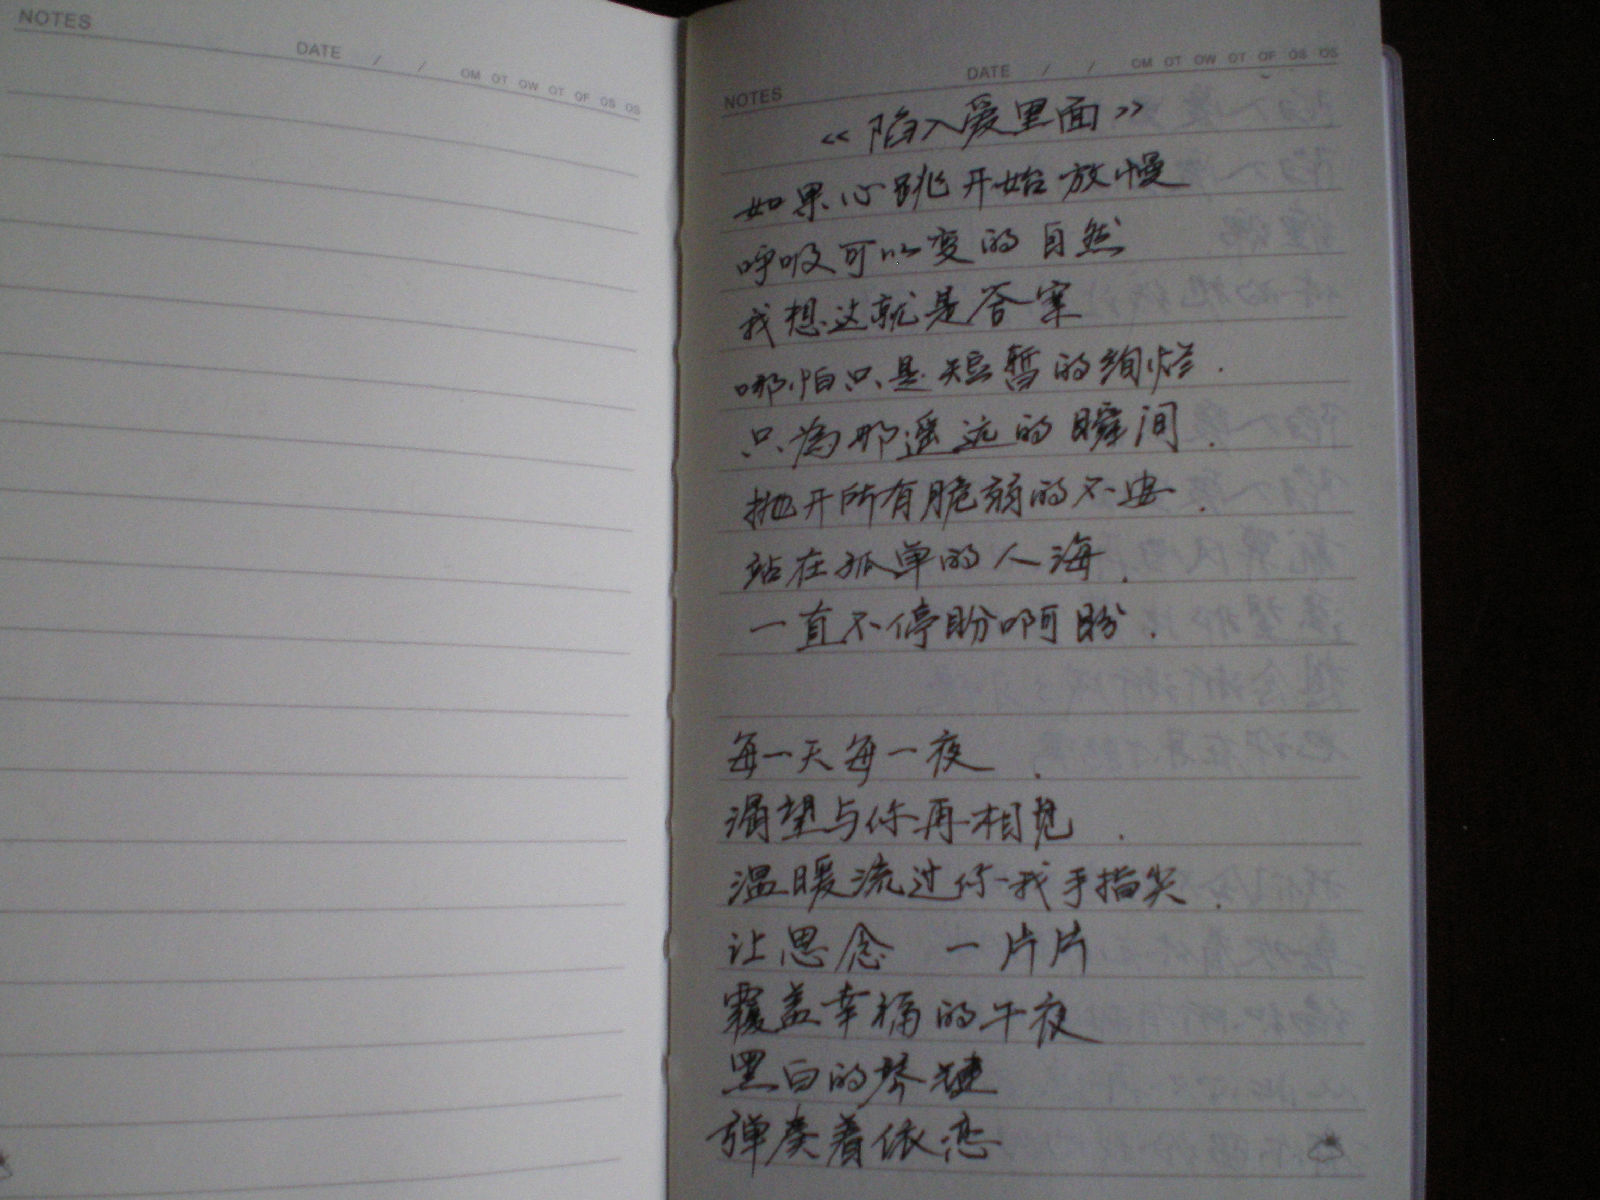 NOTES
DATE / /
OM OT OW OT OF OS OS
NOTES
DATE / /
OM OT OW OT OF OS OS
《陷入爱里面》
如果心跳开始放慢
呼吸可以变的自然
我想这就是答案
哪怕只是短暂的绚烂.
只為那遥远的瞬间.
抛开所有脆弱的不安.
站在孤单的人海.
一直不停盼啊盼.
每一天每一夜.
渴望与你再相见.
温暖流过你我手指尖.
让思念 一片片
覆盖幸福的午夜
黑白的琴键
弹奏着依恋